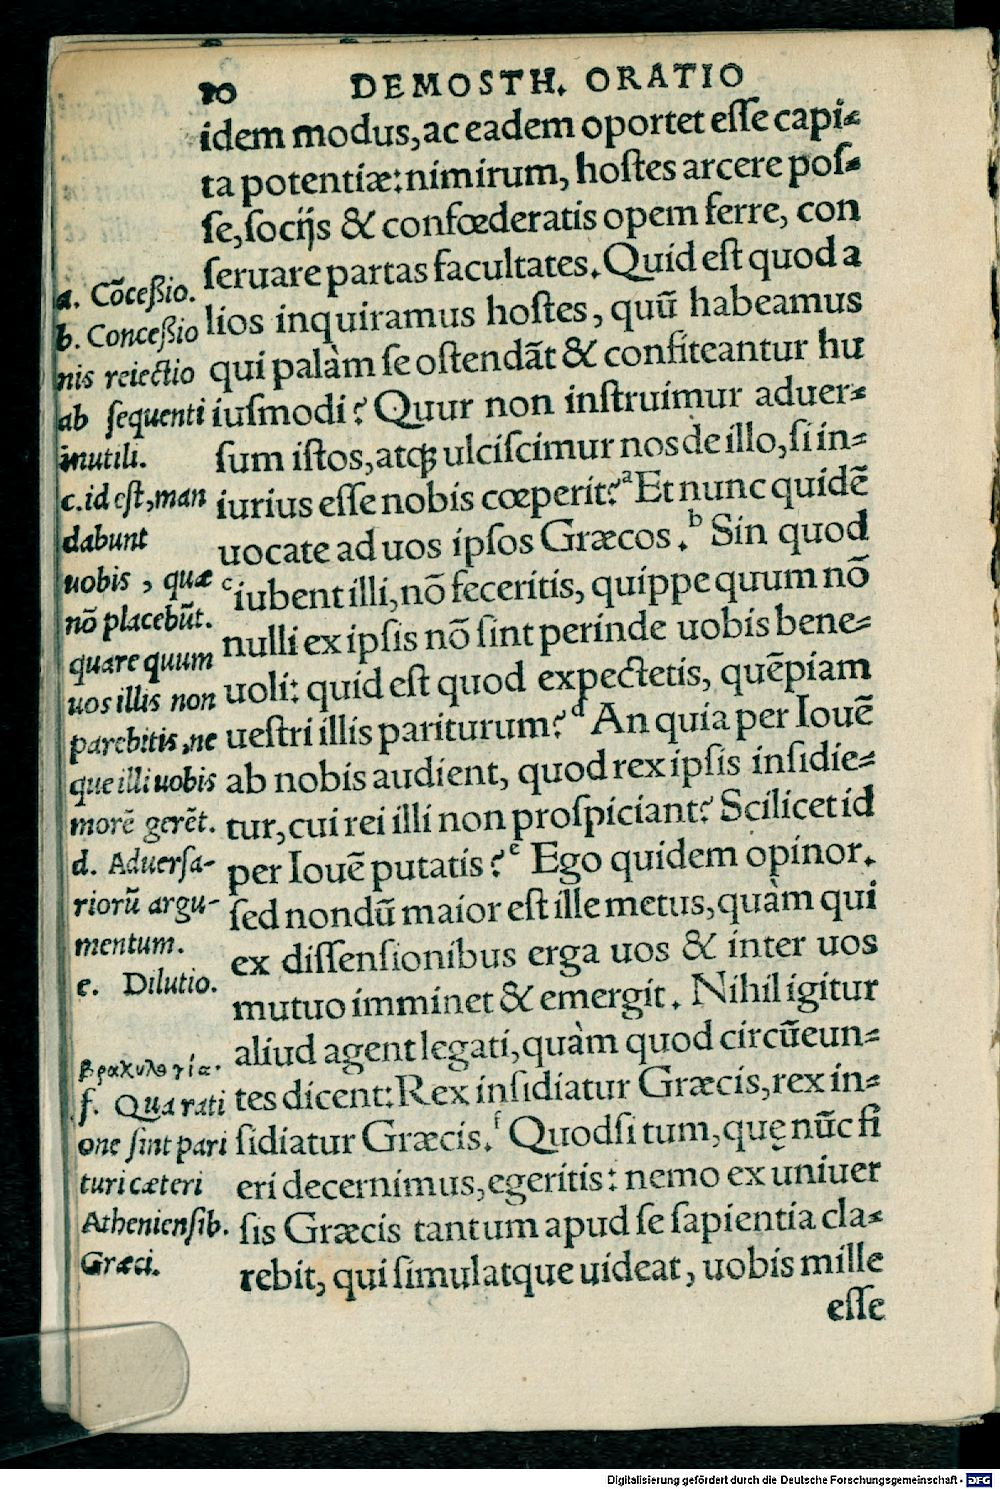 10 DEMOSTH. ORATIO
idem modus, ac eadem oportet eſſe capi⸗
ta potentiæ: nimirum, hoſtes arcere poſ⸗
ſe, ſocijs & confœderatis opem ferre, con
ſeruare partas facultates. Quid eſt quod a
lios inquiramus hoſtes, quū habeamus
qui palàm ſe oſtendāt & confiteantur hu
iuſmodi? Quur non inſtruimur aduer⸗
ſum iſtos, atqꝫ ulciſcimur nos de illo, ſi in⸗
iurius eſſe nobis cœperit? ᵃ Et nunc quidē
uocate ad uos ipſos Græcos. ᵇ Sin quod
ᶜ iubent illi, nō feceritis, quippe quum nō
nulli ex ipſis nō ſint perinde uobis bene⸗
uoli: quid eſt quod expectetis, quēpiam
ueſtri illis pariturum? ᵈ An quia per Iouē
ab nobis audient, quod rex ipſis inſidie⸗
tur, cui rei illi non proſpiciant? Scilicet id
per Iouē putatis? ᵉ Ego quidem opinor.
ſed nondū maior eſt ille metus, quàm qui
ex diſſenſionibus erga uos & inter uos
mutuo imminet & emergit. Nihil igitur
aliud agent legati, quàm quod circūeun⸗
tes dicent: Rex inſidiatur Græcis, rex in⸗
ſidiatur Græcis. ᶠ Quodſi tum, quę nūc fi
eri decernimus, egeritis: nemo ex uniuer
ſis Græcis tantum apud ſe ſapientia cla⸗
rebit, qui ſimulatque uideat, uobis mille
eſſe
a. Cōceßio.
b. Conceßio
nis reiectio
ab ſequenti
inutili.
c. id eſt, man
dabunt
uobis, quæ
nō placebūt.
quare quum
uos illis non
parebitis, ne
que illi uobis
morē gerēt.
d. Aduerſa-
riorū argu-
mentum.
e. Dilutio.
βραχυλογία.
f. Qua rati
one ſint pari
turi cæteri
Athenienſib.
Græci.
Digitalisierung gefördert durch die Deutsche Forschungsgemeinschaft - DFG